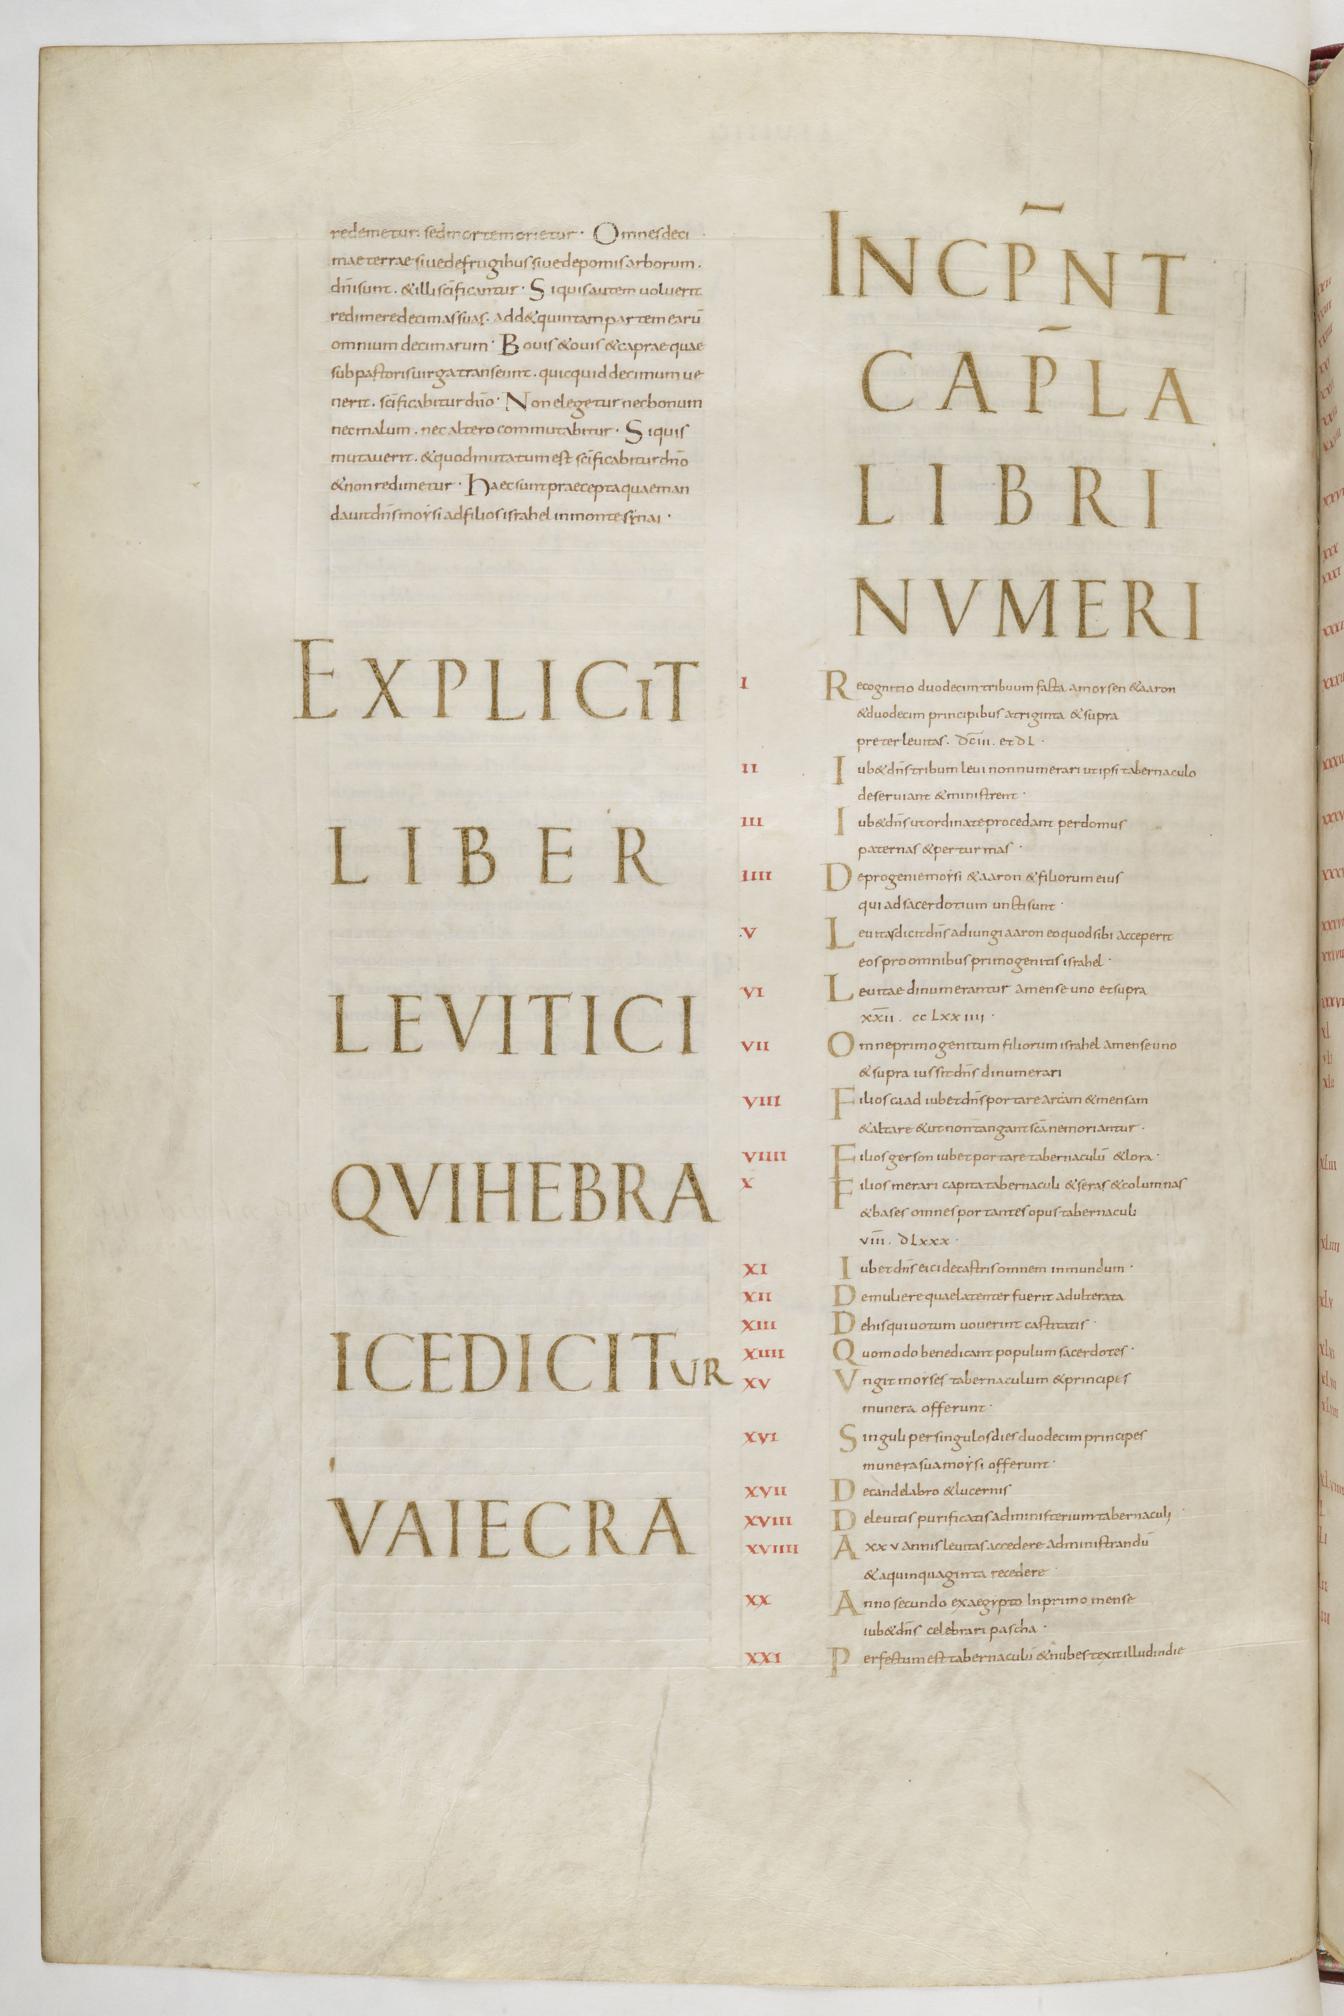 redemetur. sed morte morietur · Omnes deci
mae terrae siue de frugibus siue de pomis arborum.
dn̄i sunt. & illi sc̄ificantur · Si quis autem uoluerit
redimere decimas suas. add& quintam partem earū
omnium decimarum · Bouis & ouis & caprae quae
sub pastoris uirga transeunt. quicquid decimum ue
nerit. sc̄ificabitur dn̄o · Non elegetur nec bonum
nec malum. nec altero commutabitur · Si quis
mutauerit. & quod mutatum est sc̄ificabitur dn̄o
& non redimetur · Haec sunt praecepta quae man
dauit dn̄s moysi ad filios israhel in monte synai ·
EXPLICIT
LIBER
LEVITICI
QVI HEBRA
ICE DICITUR
VAIECRA
INCP̄NT
CAP̄LA
LIBRI
NVMERI
I Recognitio duodecim tribuum facta a moysen & aaron
& duodecim principibus a triginta & supra
preter leuitas. DC̄III. et DL ·
II Iub& dn̄s tribum leui non numerari ut ipsi tabernaculo
deseruiant & ministrent ·
III Iub& dn̄s ut ordinate procedant per domus
paternas & per turmas ·
IIII De progenie moysi & aaron & filiorum eius
qui ad sacerdotium uncti sunt ·
V Leuitas dicit dn̄s adiungi aaron eo quod sibi acceperit
eos pro omnibus primogenitis israhel ·
VI Leuitae dinumerantur a mense uno et supra
XX̄II. CCLXXIIII ·
VII Omne primogenitum filiorum israhel a mense uno
& supra iussit dn̄s dinumerari
VIII Filios caad iubet dn̄s portare arcam & mensam
& altare & ut non tangant sc̄a ne moriantur ·
VIIII Filios gerson iubet portare tabernaculū & lora ·
X Filios merari capita tabernaculi & seras & columnas
& bases omnes portantes opus tabernaculi
VIIĪ. DLXXX ·
XI Iubet dn̄s eici de castris omnem inmundum ·
XII De muliere quae latenter fuerit adulterata
XIII De his qui uotum uouerint castitatis ·
XIIII Quomodo benedicant populum sacerdotes ·
XV Vngit moyses tabernaculum & principes
munera offerunt ·
XVI Singuli per singulos dies duodecim principes
munera sua moysi offerunt ·
XVII De candelabro & lucernis
XVIII De leuitis purificatis ad ministerium tabernaculi
XVIIII A XXV annis leuitas accedere administrandū
& a quinquaginta recedere
XX Anno secundo ex aegypto In primo mense
iub& dn̄s celebrari pascha ·
XXI Perfectum est tabernaculū & nubes texit illud in die